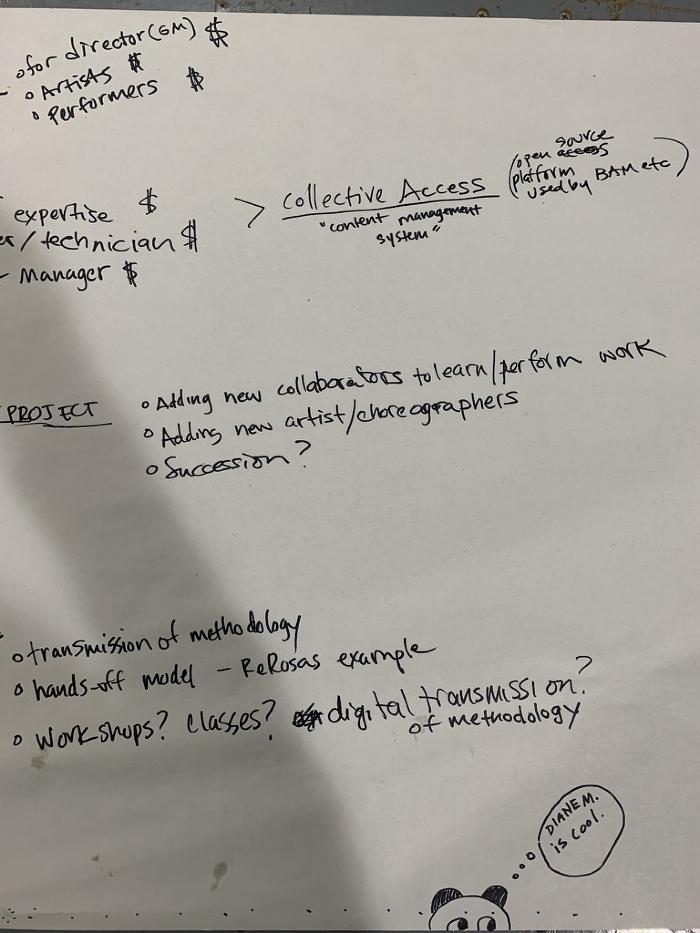 o for director (GM) $
- o Artists $
o Performers $
expertise $
/technician $
- Manager $
> Collective Access
"content management
system"
(open source
platform
used by BAM etc)
PROJECT
o Adding new collaborators to learn/perform work
o Adding new artist/choreographers
o Succession?
o transmission of methodology
o hands-off model - ReRosas example
o workshops? classes? digital transmission?
of methodology
DIANE M.
is cool.